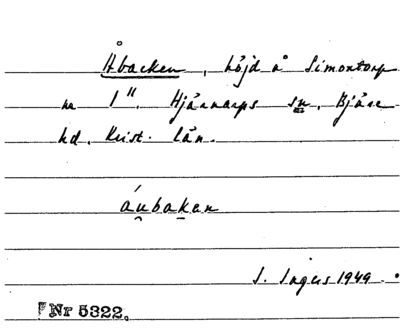 Åbacken, höjd å Simontorp
nr 1". Hjärnarps sn. Bjäre
hd. Krist. län.
áu̯baka̠n
I. Ingers 1949.
Nr 5322.